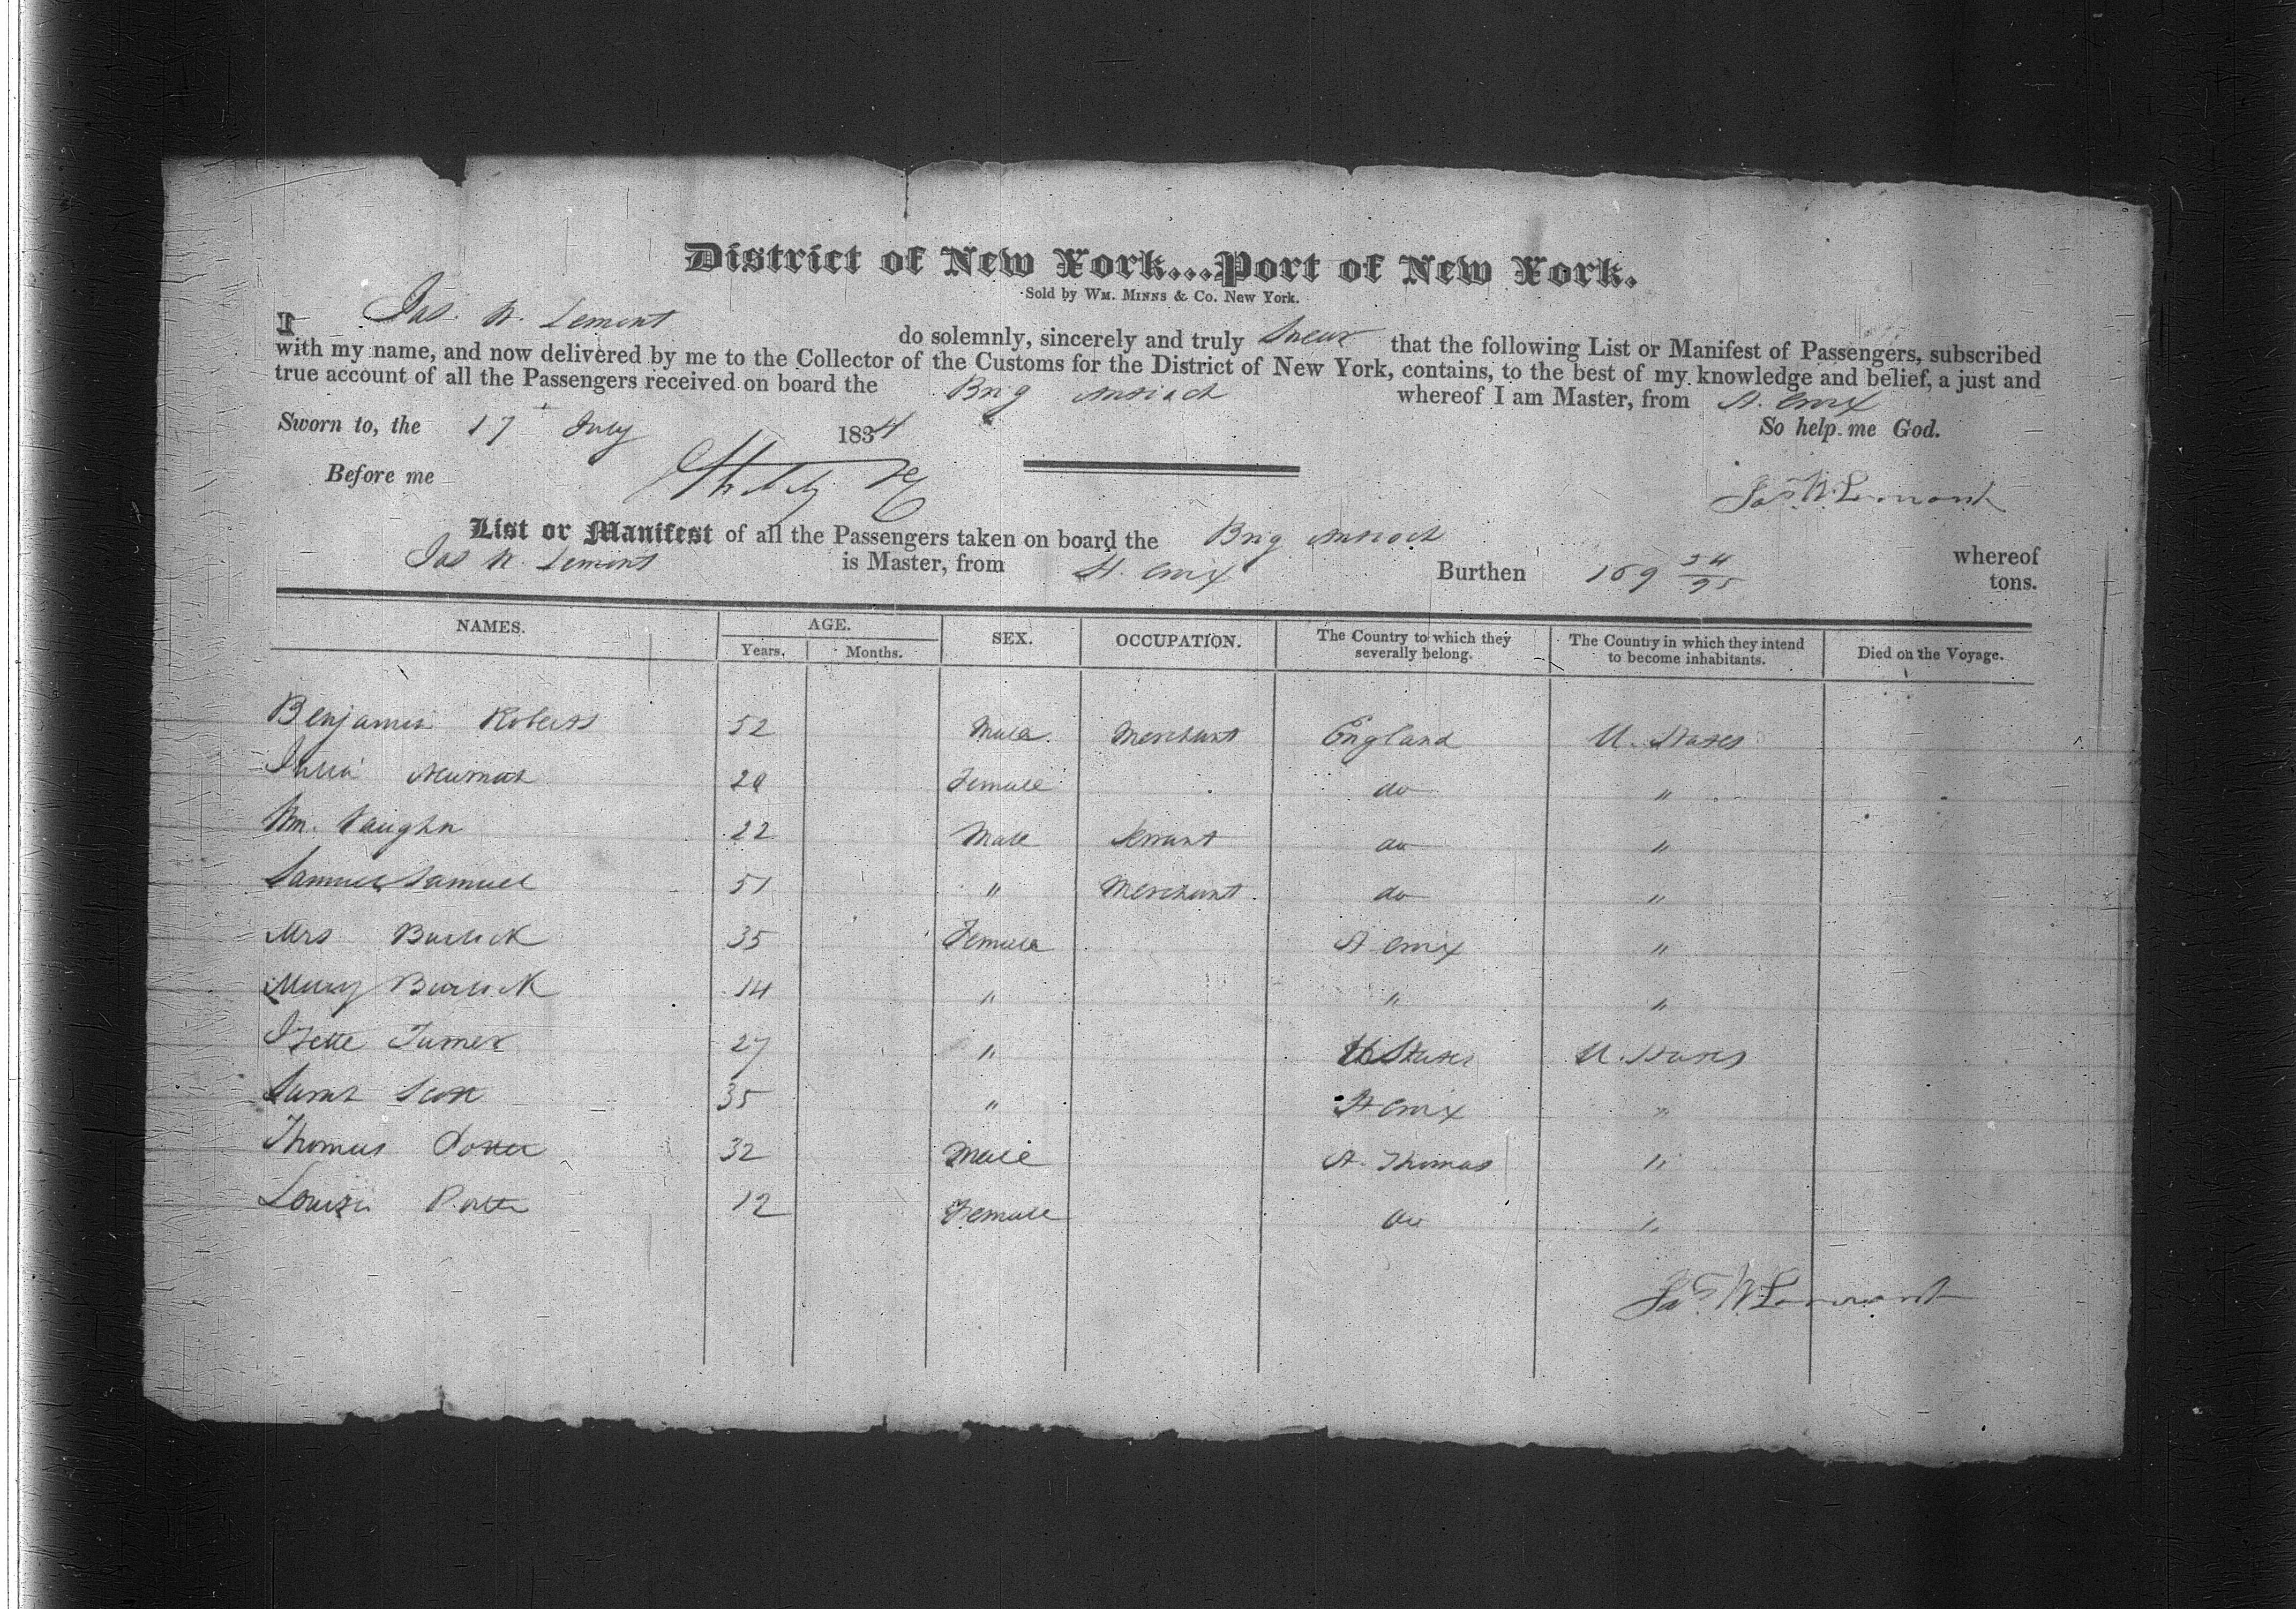 District of New York...Port of New York.
Sold by Wm. Minns & Co. New York.
I Jas. W. Lemont do solemnly, sincerely and truly Swear that the following List or Manifest of Passengers, subscribed
with my name, and now delivered by me to the Collector of the Customs for the District of New York, contains, to the best of my knowledge and belief, a just and
true account of all the Passengers received on board the Brig Antioch whereof I am Master, from St. Croix
Sworn to, the 17 July 1834 So help me God.
Before me
Jas. W. Lemont
List or Manifest of all the Passengers taken on board the Brig Antioch whereof
Jas W. Lemont is Master, from St. Croix Burthen 169 34/95 tons.
NAMES. AGE. SEX. OCCUPATION. The Country to which they severally belong. The Country in which they intend to become inhabitants. Died on the Voyage.
Years. Months.
Benjamin Roberts 52 Male Merchant England U. States
Julia Newman 20 Female do "
Wm. Vaughn 22 Male Servant do "
Samuel Samuel 51 " Merchant do "
Mrs 35 Female St Croix "
Mary 14 " " "
Izette Turner 27 " U States U. States
Sarah Scott 35 " St Croix "
Thomas Potter 32 Male St. Thomas "
Louisa Potter 12 Female do "
Jas. W. Lemont